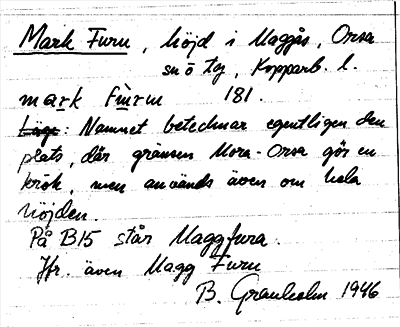 Mark Furu, höjd i Maggås, Orsa
snö tg, Kopparb. l.
mark fùru 181.
Läge: Namnet betecknar egentligen den
plats, där gränsen Mora-Orsa gör en
krök, men används även om hela
höjden.
På B15 står Maggfura.
Jfr. även Magg Furu
B. Granholm 1946